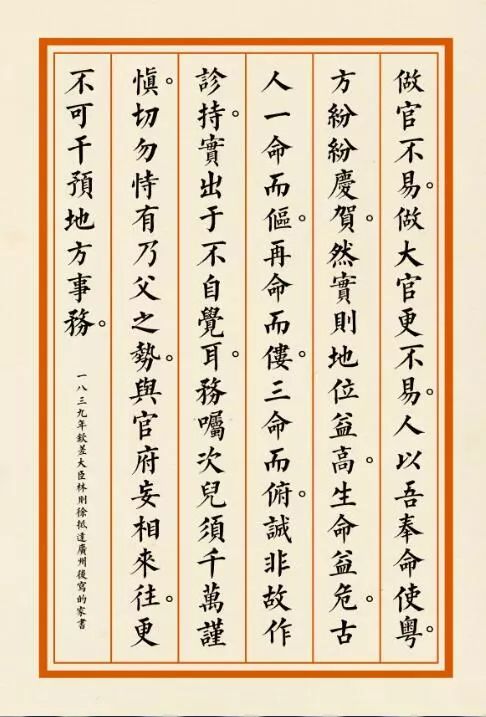 做官不易。做大官更不易。人以吾奉命使粵。
方紛紛慶賀。然實則地位益高。生命益危。古
人一命而傴。再命而僂。三命而俯。誠非故作
診持。實出于不自覺耳。務囑次兒須千萬謹
愼。切勿恃有乃父之勢。與官府妄相來往。更
不可干預地方事務。
一八三九年欽差大臣林則徐抵達廣州後寫的家書